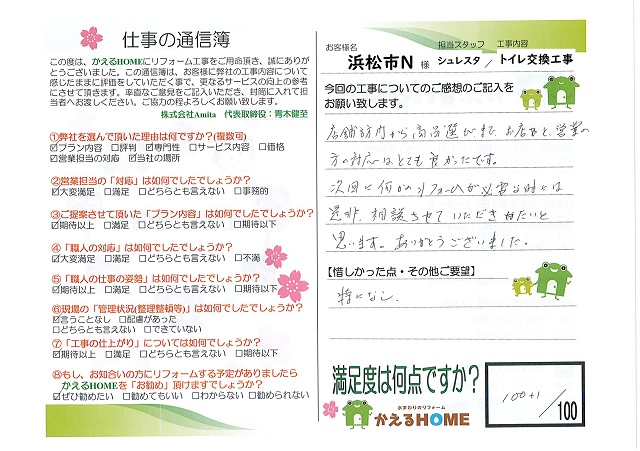 仕事の通信簿
この度は、かえるHOMEにリフォーム工事をご用命頂き、誠にありが
とうございました。この通信簿は、お客様に弊社の工事内容について
感じたままに評価をしていただく事で、更なるサービスの向上の参考
にさせて頂きます。率直なご意見をご記入いただき、封筒に入れて担
当者へお渡しください。ご協力の程よろしくお願い致します。
株式会社Amita 代表取締役:青木健至
①弊社を選んで頂いた理由は何ですか?(複数可)
☑プラン内容 □評判 ☑専門性 □サービス内容 □価格
☑営業担当の対応 ☑当社の場所
②営業担当の「対応」は如何でしたでしょうか?
☑大変満足 □満足 □どちらとも言えない □事務的
③ご提案させて頂いた「プラン内容」は如何でしたでしょうか?
☑期待以上 □満足 □どちらとも言えない □期待以下
④「職人の対応」は如何でしたでしょうか?
☑大変満足 □満足 □どちらとも言えない □不満
⑤「職人の仕事の姿勢」は如何でしたでしょうか?
☑期待以上 □満足 □どちらとも言えない □期待以下
⑥現場の「管理状況(整理整頓等)」は如何でしたでしょうか?
☑言うことなし □配慮があった
□どちらとも言えない □できていない
⑦「工事の仕上がり」については如何でしたでしょうか?
☑期待以上 □満足 □どちらとも言えない □期待以下
⑧もし、お知合いの方にリフォームする予定がありましたら
かえるHOMEを「お勧め」頂けますでしょうか?
☑ぜひ勧めたい □勧めてもいい □わからない □勧められない
お客様名 担当スタッフ 工事内容
浜松市N 様 シュレスタ / トイレ交換工事
今回の工事についてのご感想のご記入を
お願い致します。
店舗訪問から商品選び、また、お店など、営業の
方の対応はとても良かったです。
次回に何かのリフォームが必要な時には
是非、相談させていただきたいと
思います。ありがとうございました。
【惜しかった点・その他ご要望】
特になし
満足度は何点ですか?
100+1/100
水まわりのリフォーム
かえるHOME